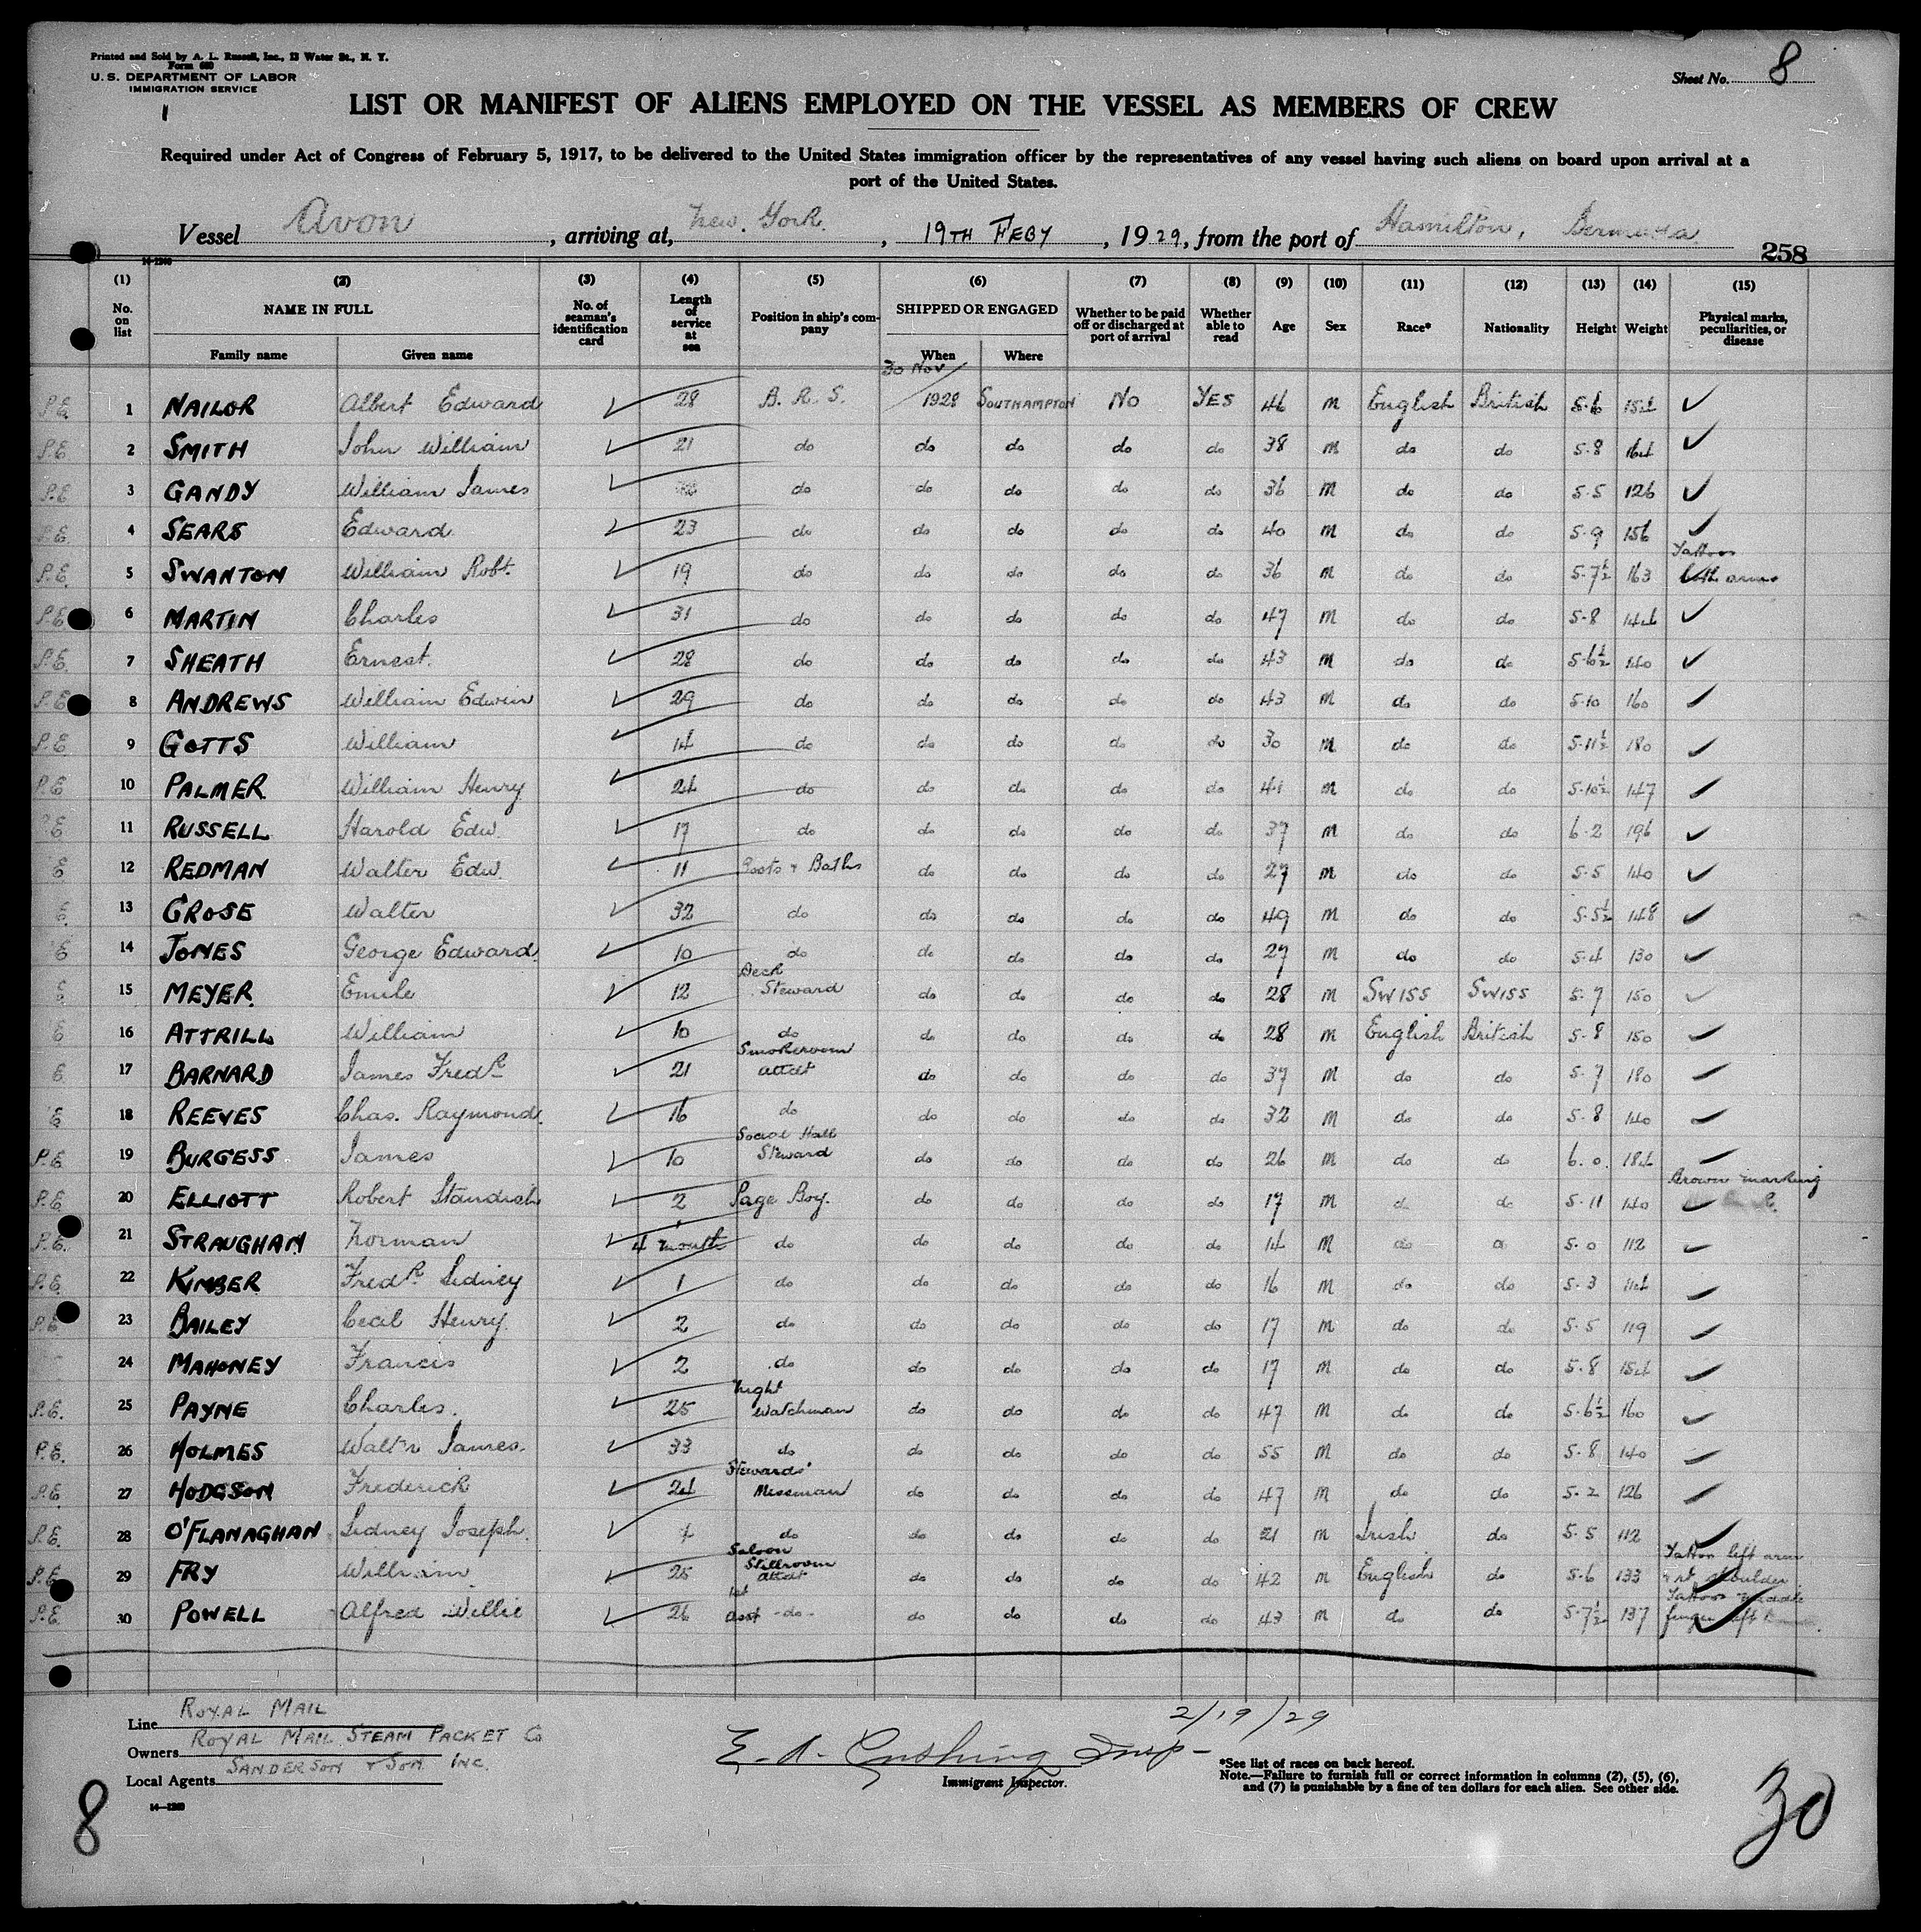 Printed and Sold by A. L. Russell, Inc., 13 Water St., N. Y.
Form 680
U. S. DEPARTMENT OF LABOR
IMMIGRATION SERVICE
1
Sheet No. 8
LIST OR MANIFEST OF ALIENS EMPLOYED ON THE VESSEL AS MEMBERS OF CREW
Required under Act of Congress of February 5, 1917, to be delivered to the United States immigration officer by the representatives of any vessel having such aliens on board upon arrival at a
port of the United States.
Vessel Avon, arriving at, New York, 19TH FEBY, 1929, from the port of Hamilton, Bermuda
258
(1) (2) (3) (4) (5) (6) (7) (8) (9) (10) (11) (12) (13) (14) (15)
No. on list NAME IN FULL Family name Given name No. of seaman's identification card Length of service at sea Position in ship's company SHIPPED OR ENGAGED When Where Whether to be paid off or discharged at port of arrival Whether able to read Age Sex Race* Nationality Height Weight Physical marks, peculiarities, or disease
P.E. 1 NAILOR Albert Edward 28 B. R. S. 30 Nov/1928 SOUTHAMPTON No YES 46 m English British 5-6 154
P.E 2 SMITH John William 21 do do do do do 38 m do do 5-8 164
P.E 3 GANDY William James do do do do do 36 m do do 5-5 126
P.E. 4 SEARS Edward 23 do do do do do 40 m do do 5-9 156
P.E. 5 SWANTON William Robt. 19 do do do do do 36 m do do 5-7½ 163 Tattoos both arms
P.E 6 MARTIN Charles 31 do do do do do 47 m do do 5-8 144
P.E. 7 SHEATH Ernest. 28 do do do do do 43 m do do 5-6½ 140
P.E 8 ANDREWS William Edwin 29 do do do do do 43 m do do 5-10 160
P.E 9 GOTTS William 14 do do do do do 30 m do do 5-11½ 180
P.E. 10 PALMER William Henry 24 do do do do do 41 m do do 5-10½ 147
P.E 11 RUSSELL Harold Edw. 17 do do do do do 37 m do do 6-2 196
E 12 REDMAN Walter Edw. 11 Boots & Baths do do do do 27 m do do 5-5 140
E 13 GROSE Walter 32 do do do do do 49 m do do 5-5½ 148
E 14 JONES George Edward. 10 do do do do do 27 m do do 5-4 130
E 15 MEYER Emile 12 Deck Steward do do do do 28 m SWISS SWISS 5-7 150
E 16 ATTRILL William 10 do do do do do 28 m English British 5-8 150
E 17 BARNARD James Fredk 21 Smokeroom attdt do do do do 37 m do do 5-7 180
E 18 REEVES Chas. Raymond. 16 do do do do do 32 m do do 5-8 140
P.E. 19 BURGESS James 10 Social Hall Steward do do do do 26 m do do 6.0. 184
P.E 20 ELLIOTT Robert Standish 2 Page Boy. do do do do 17 m do do 5-11 140 Brown marking
P.E. 21 STRAUGHAN Norman 4 month do do do do do 14 m do do 5-0 112
P.E. 22 KIMBER Fredk Sidney 1 do do do do do 16 m do do 5-3 114
P.E 23 BAILEY Cecil Henry. 2 do do do do do 17 m do do 5-5 119
24 MAHONEY Francis 2 do do do do do 17 m do do 5-8 154
P.E. 25 PAYNE Charles. 25 Night Watchman do do do do 47 m do do 5-6½ 160
P.E. 26 HOLMES Walter James. 33 do do do do do 55 m do do 5-8 140
P.E. 27 HODGSON Frederick 24 Stewards' Messman do do do do 47 m do do 5-2 126
P.E. 28 O'FLANAGHAN Sidney Joseph. do do do do do 21 m Irish do 5-5 112
P.E 29 FRY William 25 Saloon Stillroom attdt do do do do 42 m English do 5-6 133 Tattoo left arm & rt shoulder
P.E. 30 POWELL Alfred Willie 26 1st asst -do- do do do do 43 m do do 5-7½ 137 Tattoos middle finger left
Line ROYAL MAIL
Owners ROYAL MAIL STEAM PACKET Co
Local Agents SANDERSON & SON INC.
14—1240
2/19/29
E. A. Cushing Insp-
Immigrant Inspector.
*See list of races on back hereof.
Note.—Failure to furnish full or correct information in columns (2), (5), (6),
and (7) is punishable by a fine of ten dollars for each alien. See other side.
8
30